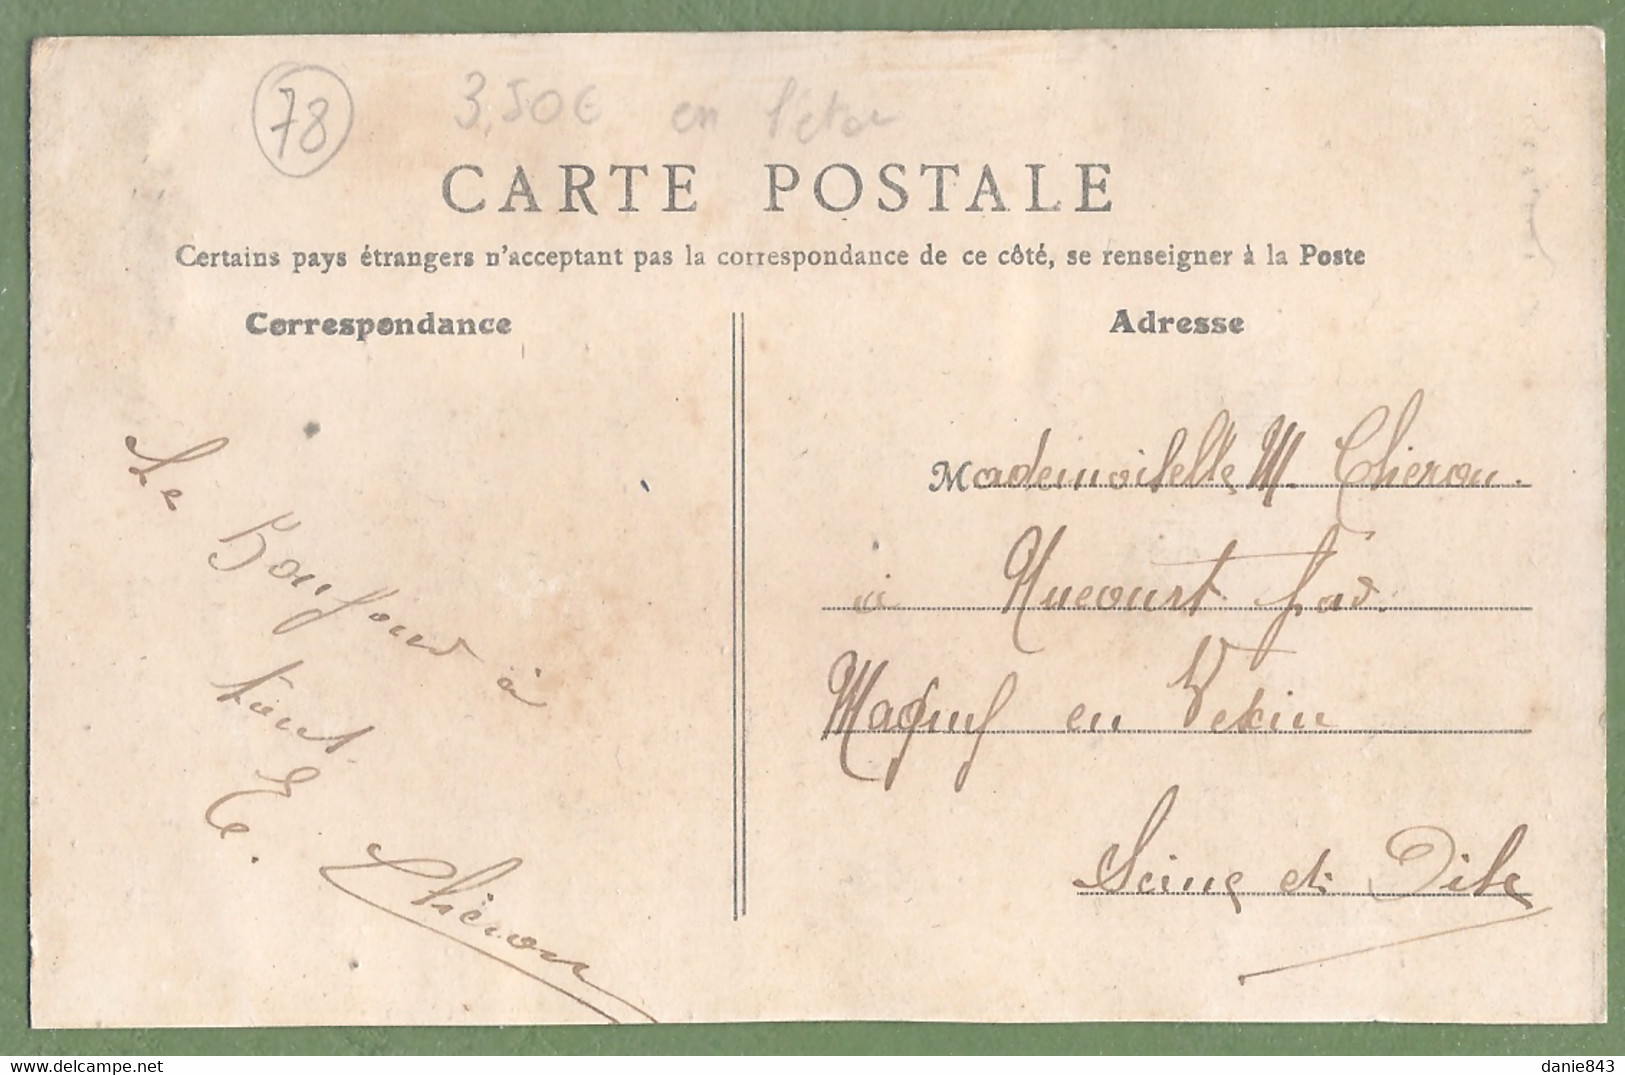 78
3,50€ en l'état
CARTE POSTALE
Certains pays étrangers n'acceptant pas la correspondance de ce côté, se renseigner à la Poste
Correspondance
Le
Bonjour à
tout
E. Chéron
Adresse
Mademoiselle M. Cheron.
à Nucourt par
Magny en Vexin
Seine et Oise
danie843